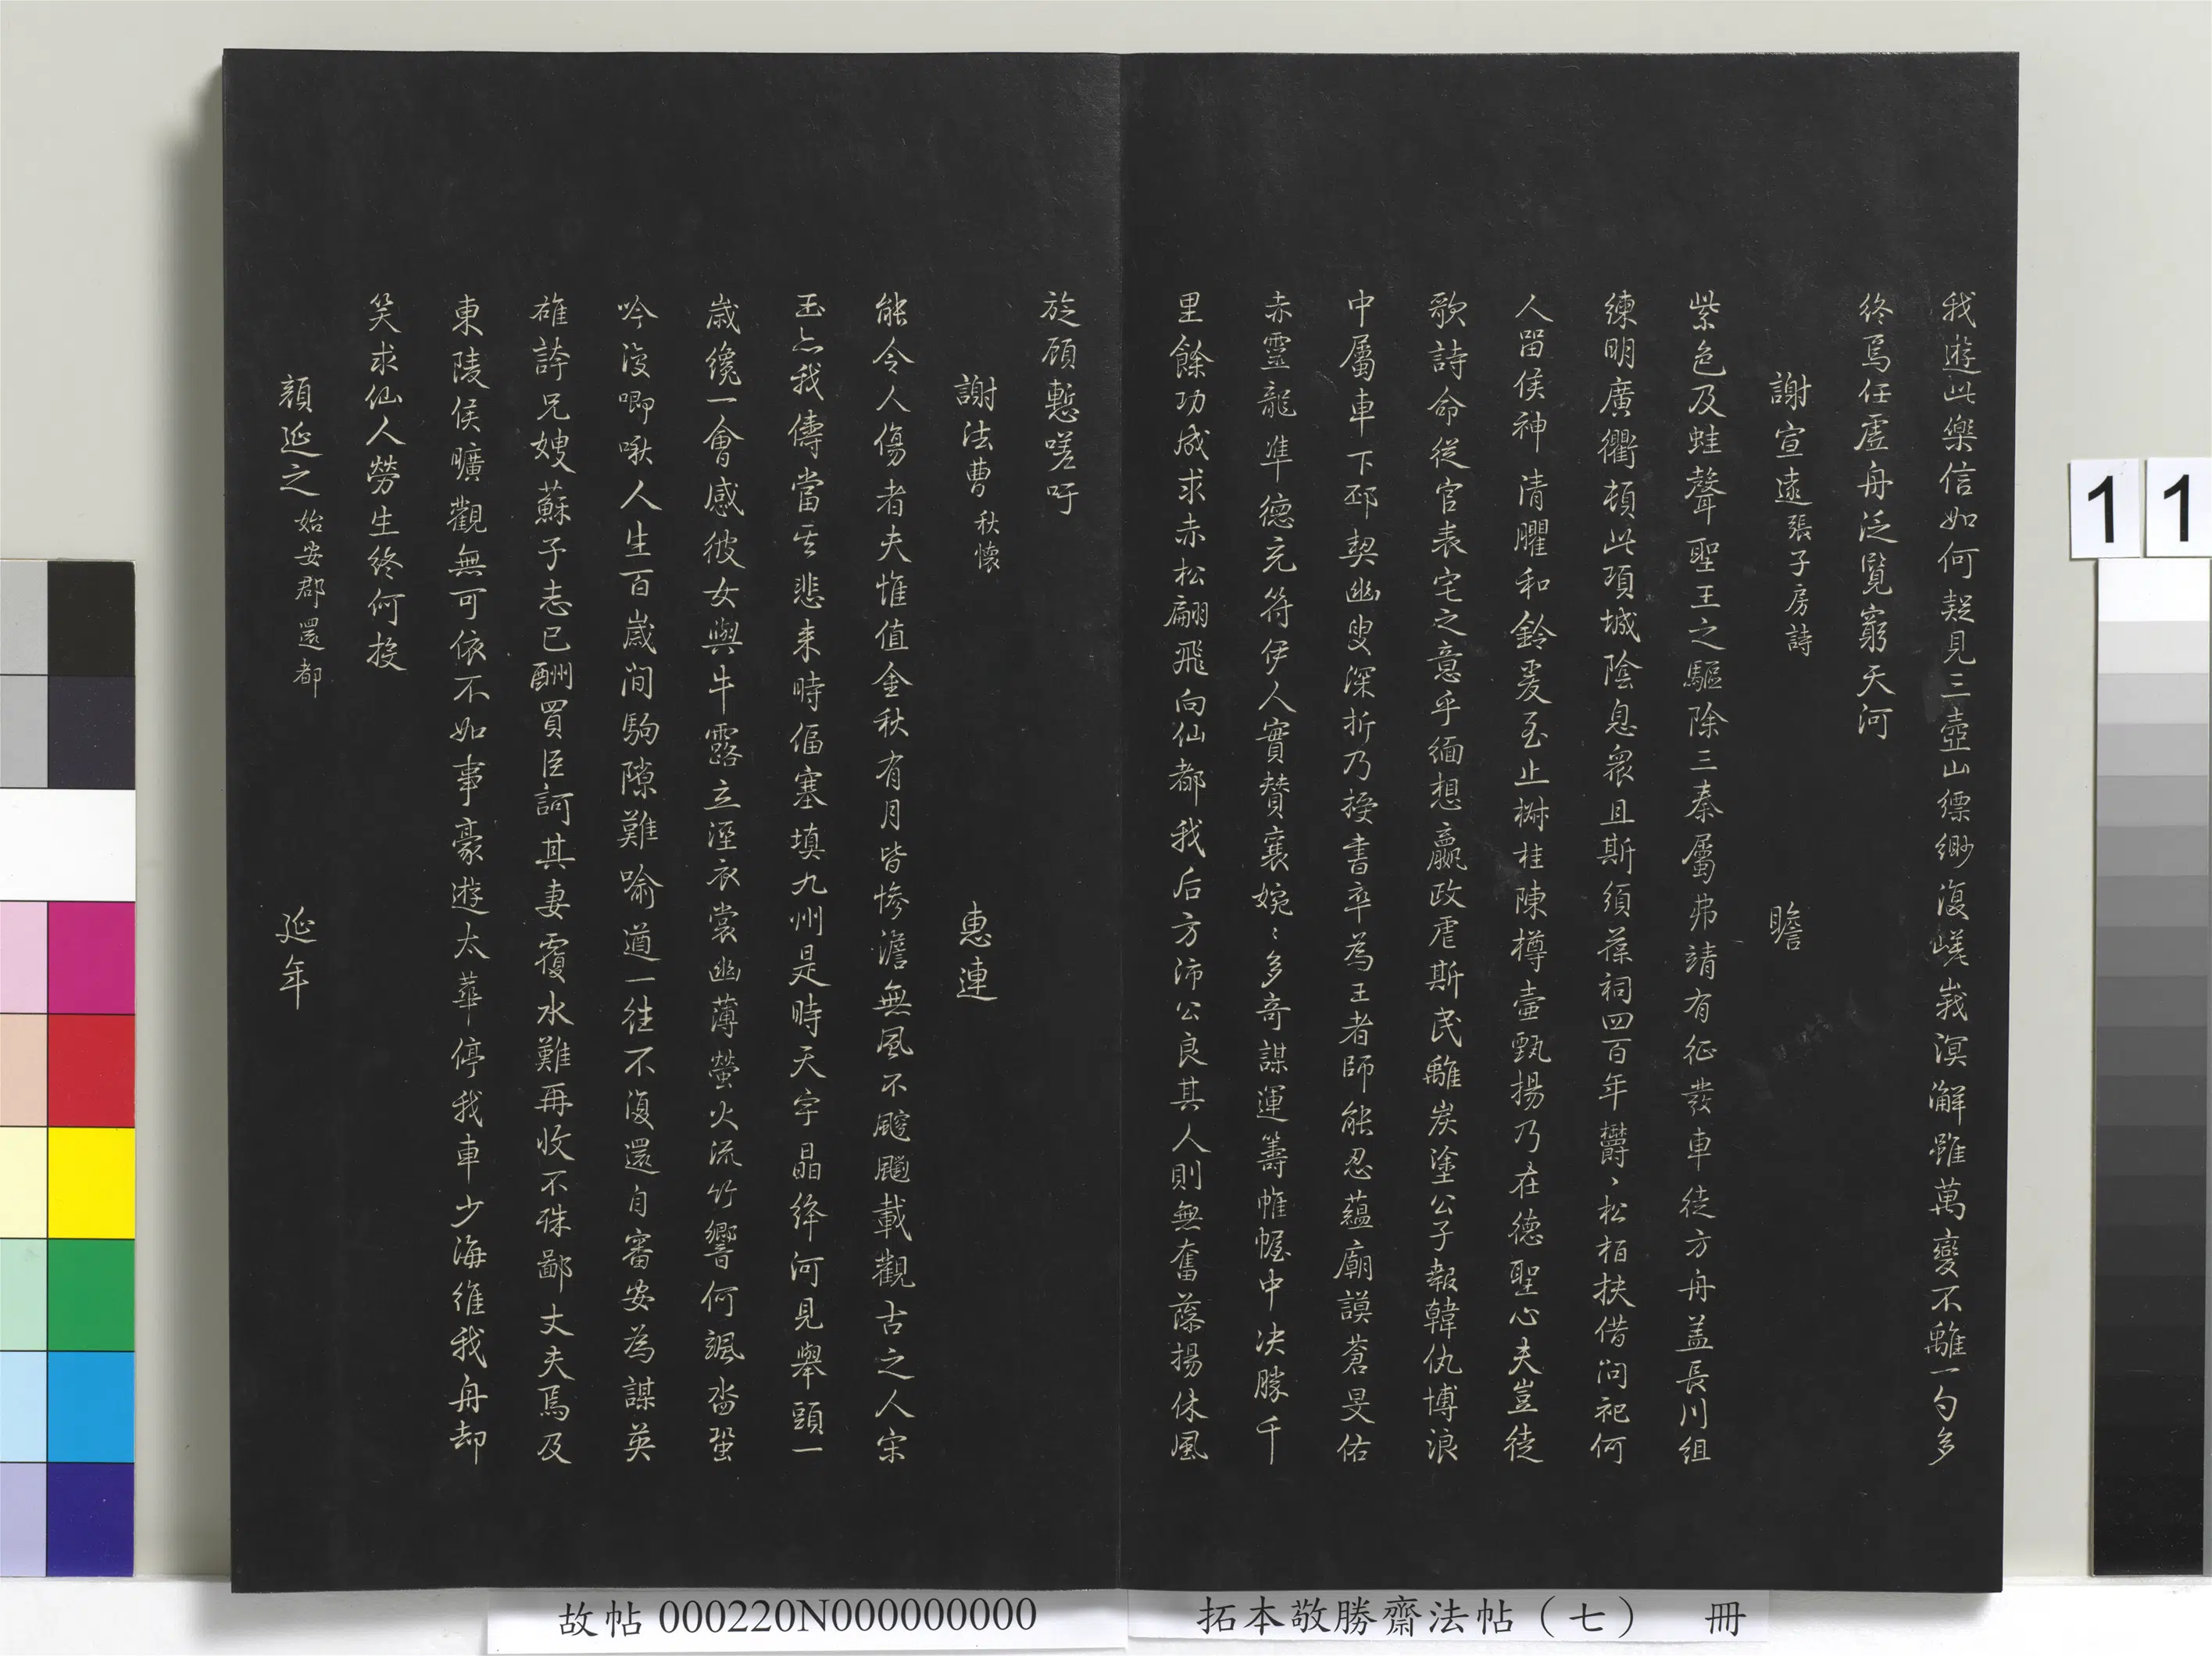 我遊此樂信如何疑見三壺山縹緲復嵯峩溟澥雖萬變不離一勺多
終焉任虛舟泛覽窮天河
謝宣遠張子房詩 瞻
紫色及蛙聲聖王之驅除三秦屬弗靖有征發車徒方舟蓋長川組
練明廣衢頓此項城陰息衆且斯須葆祠四百年欝、松栢扶借問祀何
人留侯神清臞和鈴爰至止樹桂陳樽壷甄揚乃在德聖心夫豈徒
歌詩命從官表宅之意乎緬想嬴政虐斯民離炭塗公子報韓仇博浪
中屬車下邳契幽叟深折乃授書卒為王者師能忍蘊廟謨蒼旻佑
赤靈龍準德充符伊人實贊襄婉〻多奇謀運籌帷幄中决勝千
里餘功成求赤松翩飛向仙都我后方沛公良其人則無奮藻揚休風
旋顧慙嗟吁
謝法曹秋懷 惠連
能令人傷者夫惟值金秋有月皆慘澹無風不飋颼載觀古之人宋
玉亦我儔當其悲来時偪塞填九州是時天宇晶絳河見舉頭一
歲纔一會感彼女與牛露立溼衣裳幽薄螢火流竹響何颯沓蛩
吟復唧啾人生百歲間駒隙難喻遒一往不復還自審安為謀英
雄誇兄嫂蘇子志已酬買臣訶其妻覆水難再收不殊鄙丈夫焉及
東陵侯曠觀無可依不如事豪遊太華停我車少海維我舟却
笑求仙人勞生終何投
顏延之始安郡還都 延年
11
故帖000220N000000000
拓本敬勝齋法帖（七） 冊